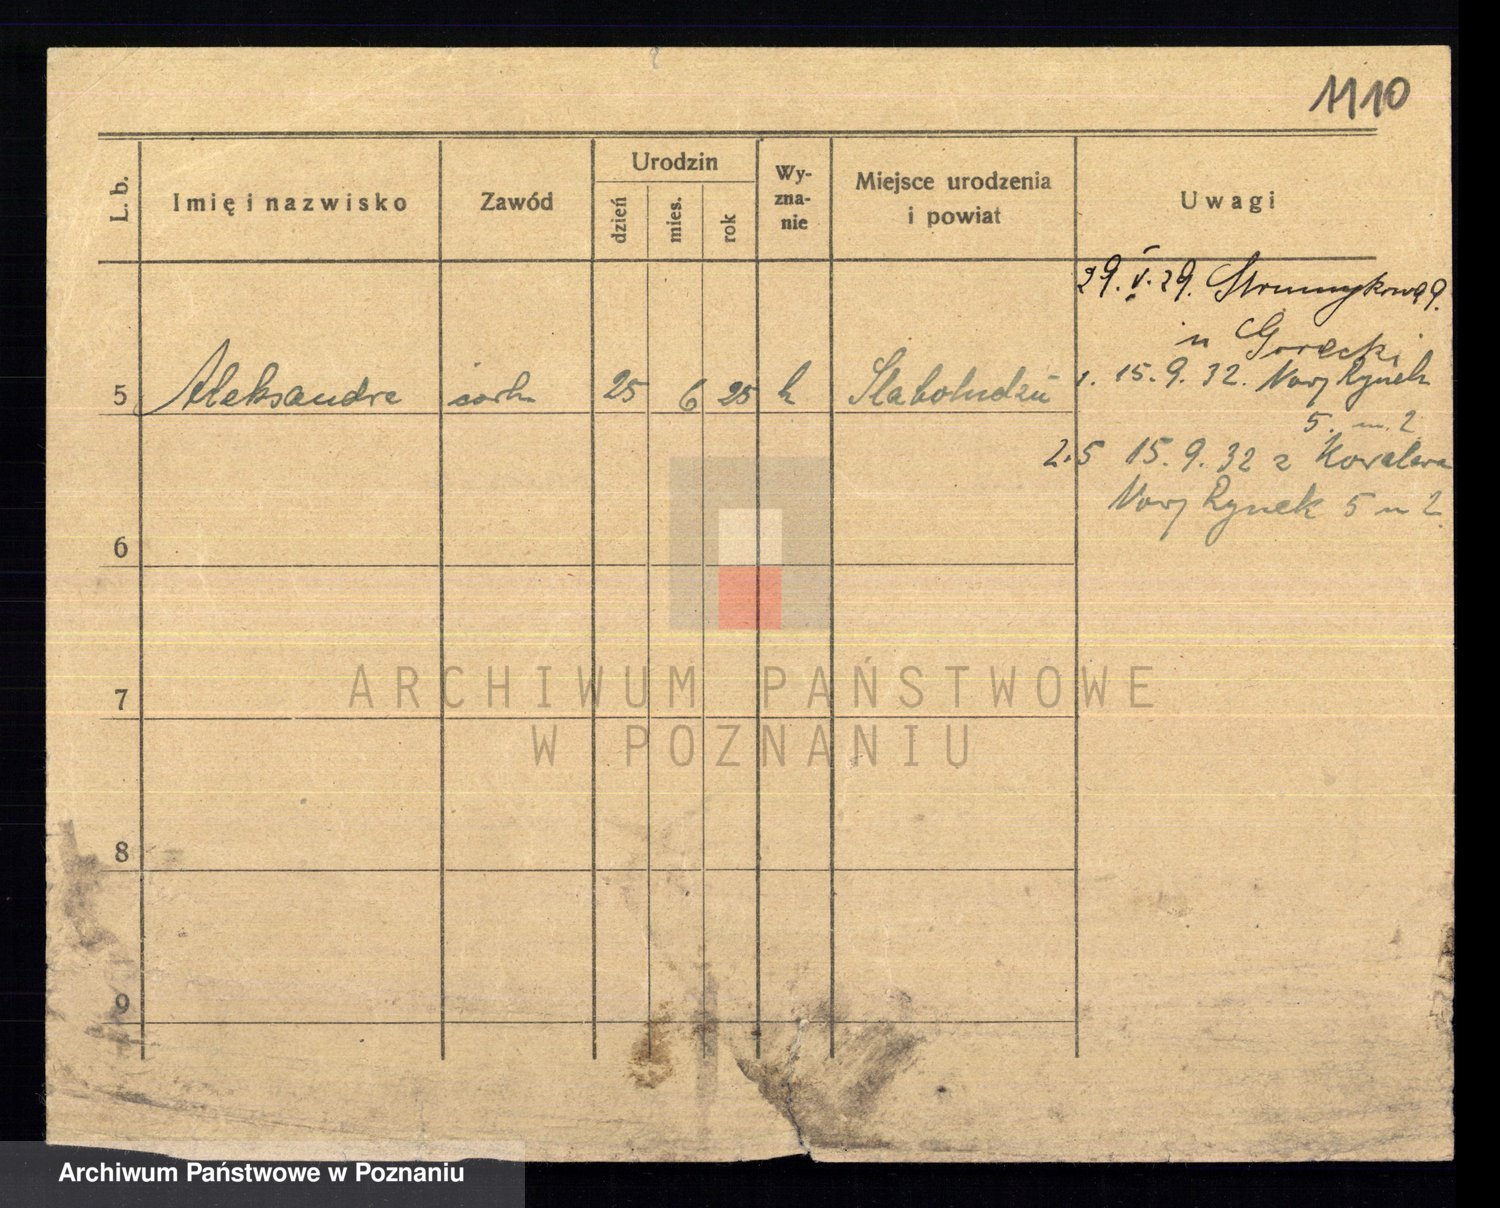 1110
L. b.
Imię i nazwisko
Zawód
Urodzin
dzień
mies.
rok
Wy-
zna-
nie
Miejsce urodzenia
i powiat
Uwagi
29. V. 29. 99.
u Gorecki
5 Aleksandra córka 25 6 25 k
1. 15. 9. 32. Nowy Rynek
5. m. 2
2. 5 15. 9. 32 z
Nowy Rynek 5 m 2.
6
7
8
9
ARCHIWUM PAŃSTWOWE
W POZNANIU
Archiwum Państwowe w Poznaniu